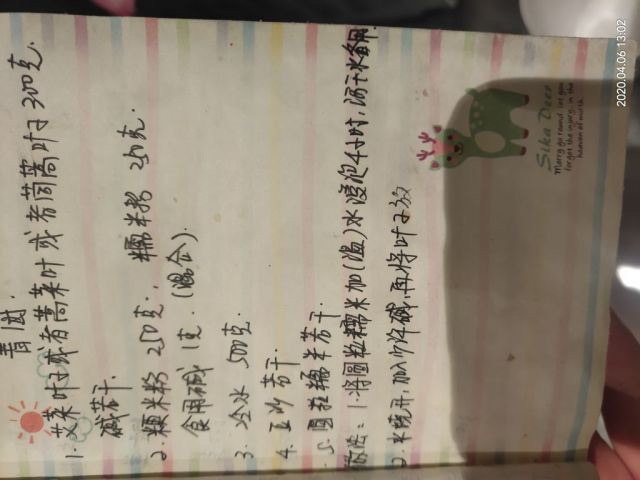 青团.
1. 艾菜叶子或者蒿菜叶或者茼蒿叶子300克.
碱若干.
2. 粳米粉 250克. 糯米粉 250克.
食用碱 1克. (混合).
3. 冷水 500克.
4. 豆沙若干
5. 圆粒糯米若干.
做法: 1.将圆粒糯米加(温)水浸泡4小时,沥干水备用.
2.水烧开,加入少许碱,再将叶子放
Sika Deer
Merry go round let you
forget the injury, in the
heaven of mirth
2020.04.06 13:02